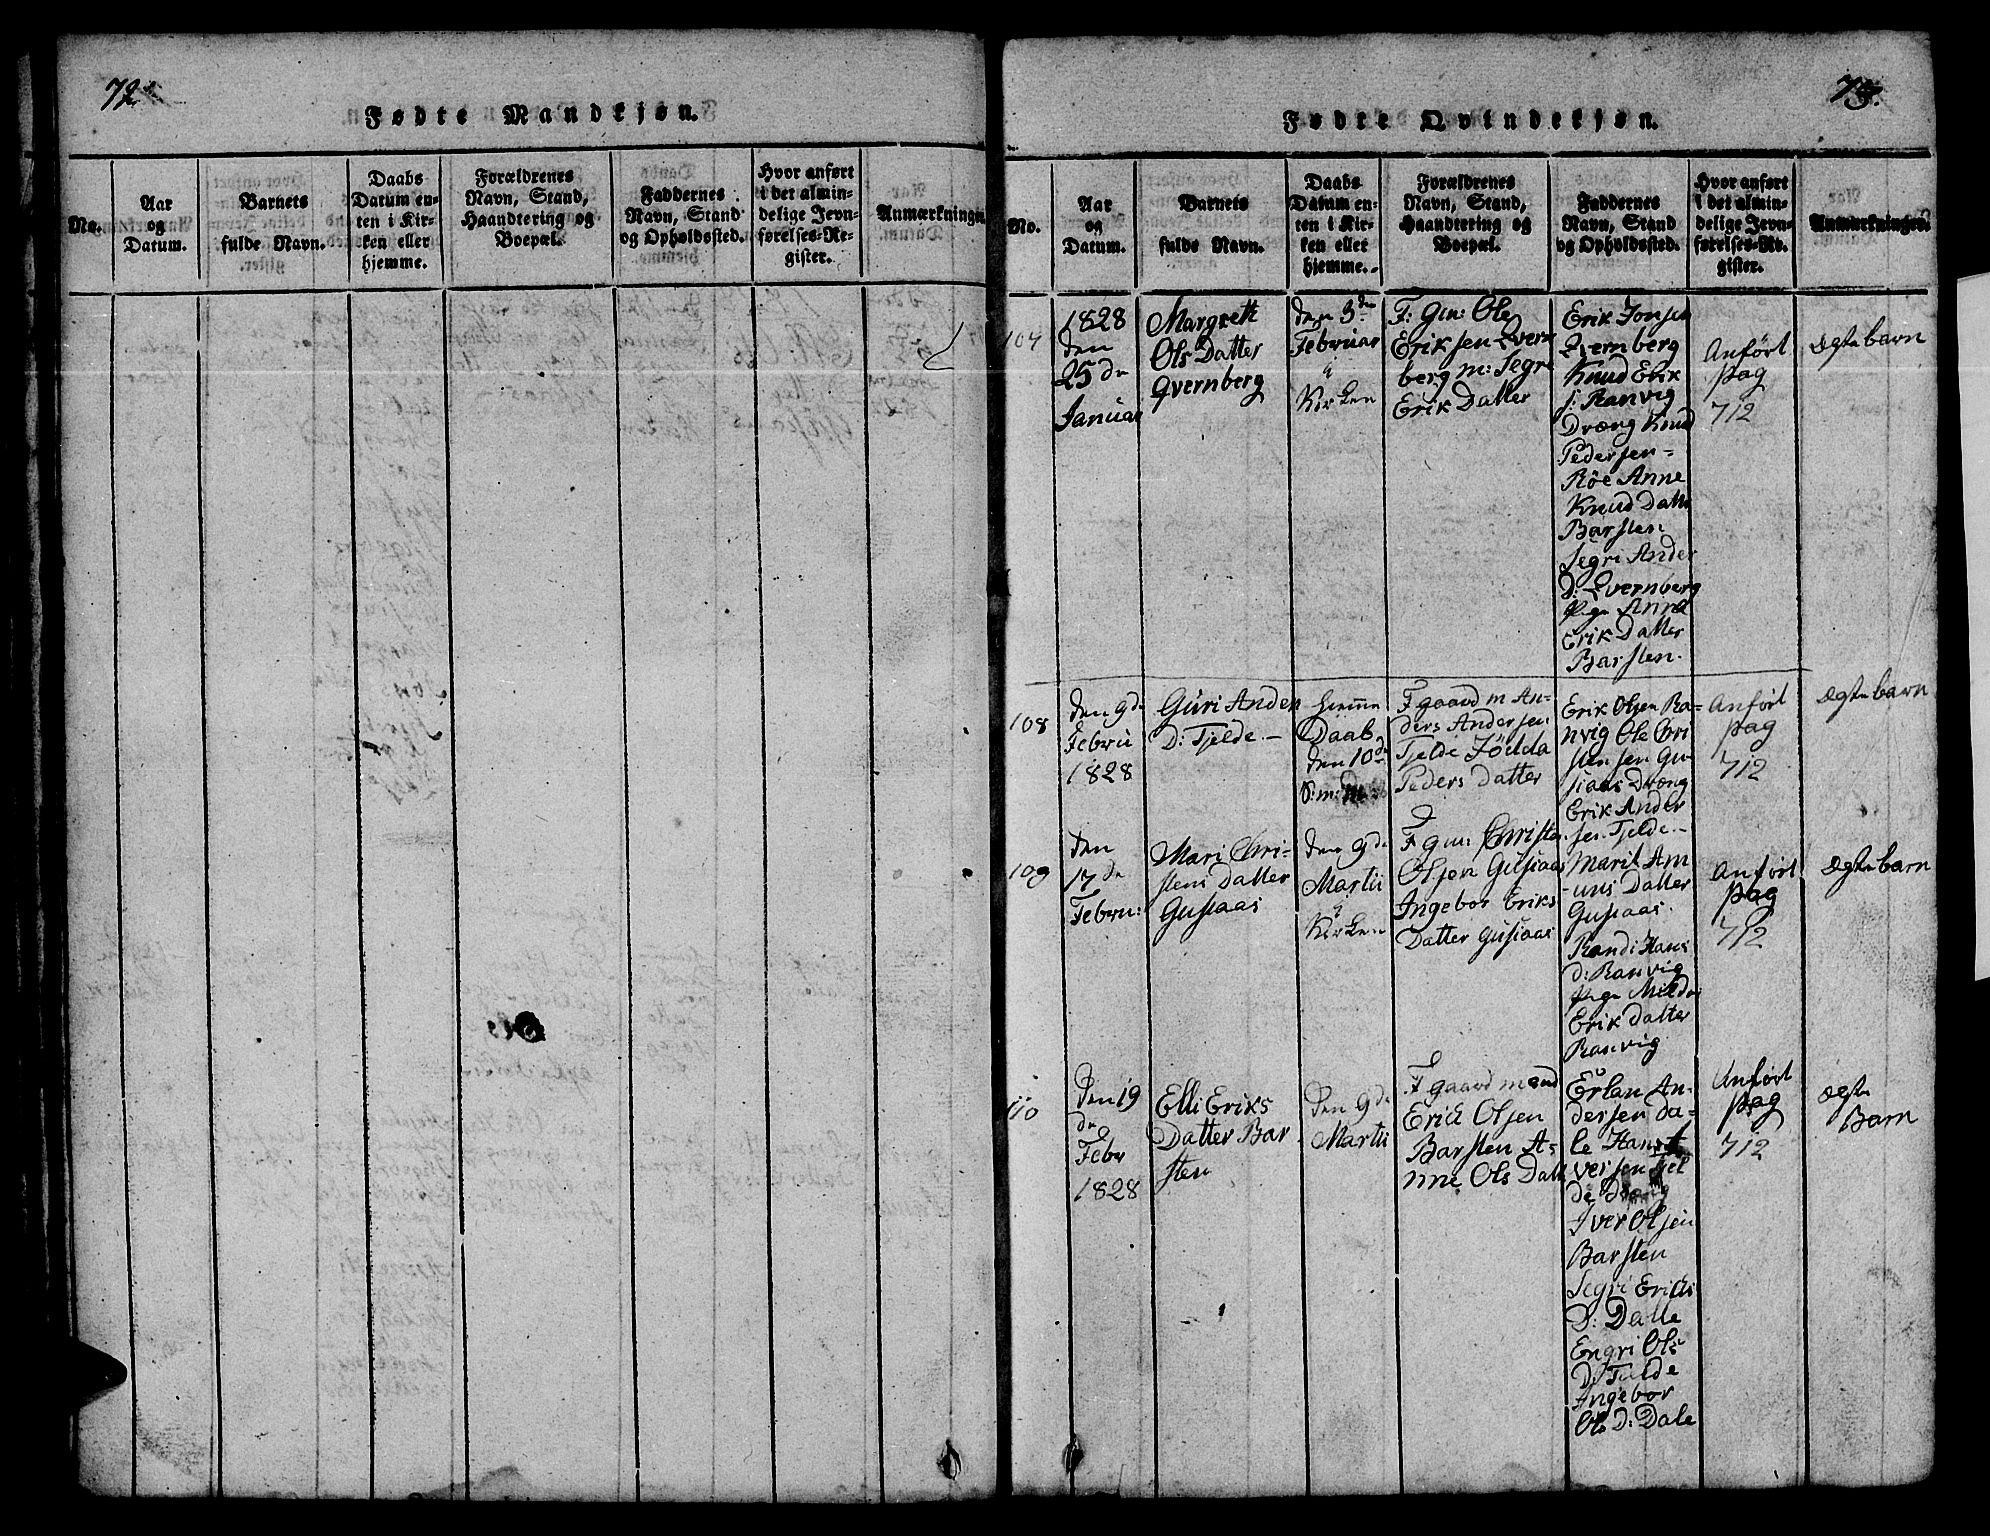 72
Fødte Mandkjøn.
No.
Aar
og
Datum.
Barnets
fulde Navn.
Daabs
Datum en-
ten i Kir-
ken eller
hjemme.
Forældrenes
Navn, Stand,
Haandtering og
Boepæl.
Faddernes
Navn, Stand
og Opholdssted.
Hvor anført
i det almin-
delige Jevn-
førelses-Re-
gister.
Anmærkninger
73.
Fødte Qvindekjøn.
No.
Aar
og
Datum.
Barnets
fulde Navn.
Daabs
Datum en-
ten i Kir-
ken eller
hjemme.
Forældrenes
Navn, Stand,
Haandtering og
Boepæl.
Faddernes
Navn, Stand
og Opholdssted.
Hvor anført
i det almin-
delige Jevn-
førelses-Re-
gister.
Anmærkninger.
107
1828
den
25 de
Januar
Margrett
Ols Datter
Qvernberg
den 3de
Februar
i
Kirken
F: Gm: Ole
Eriksen Qvern
berg m: Segre
Erik Datter
Erik Jonsen
Qvernberg
Knud Erik
s: Ranvig
Dræng Knud
Pedersen
Röe Anne
Knud Datte
Barsten
Segri Ander
D: Qvernberg
Pige Anne
Erik Datter
Barsten.
Anført
pag
712
Ægte barn
108
den 9de
Febru
1828
Guri Anders
D: Tjelde
Hjemme
Daab
den 10de
F gaard m An-
ders Andersen
Tjelde
Peders Datter
Erik Olsen Ra-
nvig Ole Cri
stensen Gu
siaas Dræng
Erik Ander
sen Tjelde
Anført
pag
712
Ægte barn
109
den
17 de
Febru:
Mari Chri-
stens Datter
Gusiaas
den 9de
Martii
i
Kirken
F gm: Christen
Olsen Gusiaas
Ingebor Eriks
Datter Gusiaas
Marit Am
uns Datter
Gusiaas.
Randi Hans
d: Ranvig
Pige Mildri
Erik Datter
Ranvig
Anført
pag
712
Ægte barn
110
Den 19
de
Febr
1828
Elli Eriks
Datter Bar
sten
Den 9de
Martii
F gaard mand
Erick Olsen
Barsten A-
nne Ols Datt
Erlan An-
dersen Da-
le Hans
versen Tjel
de
Iver Olsen
Barsten
Segri Ericks
D: Dalle
Engri Ols
D: Tjelde
Ingebor
Ols D: Dale
Anført
pag
712
Ægte
Barn